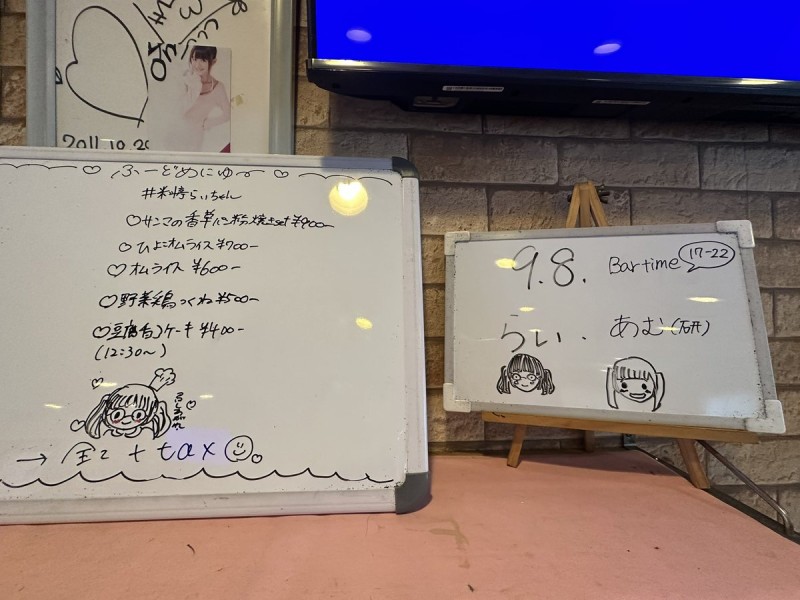 2011.10.29
ふーどめにゅー
#米時らいちゃん
サンマの香草パン粉焼きset ¥900-
ひよこオムライス ¥700-
オムライス ¥600-
野菜鶏つくね ¥500-
豆腐白ケーキ ¥400-
(12:30〜)
→ 全て + tax
9.8. Bartime 17-22
らい. あむ(研)